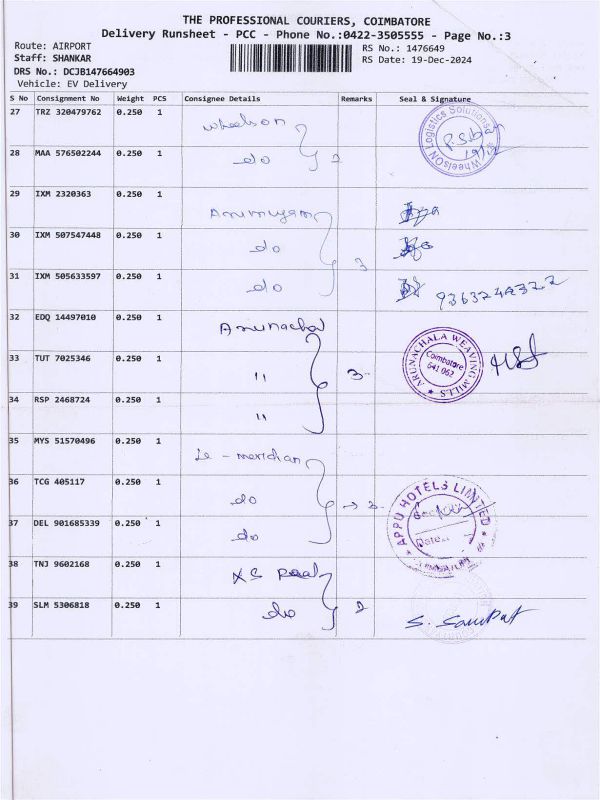 THE PROFESSIONAL COURIERS, COIMBATORE
Delivery Runsheet - PCC - Phone No.:0422-3505555 - Page No.:3
Route: AIRPORT
RS No.: 1476649
Staff: SHANKAR
RS Date: 19-Dec-2024
DRS No.: DCJB147664903
Vehicle: EV Delivery
S No Consignment No Weight PCS Consignee Details Remarks Seal & Signature
27 TRZ 320479762 0.250 1 Wheelson
WheelsON Logistics Solutions
28 MAA 576502244 0.250 1 do 2
29 IXM 2320363 0.250 1 Arumugam
30 IXM 507547448 0.250 1 do
31 IXM 505633597 0.250 1 do 3
32 EDQ 14497010 0.250 1 Arunachal
ARUNACHALA WEAVING MILLS
Coimbatore
641 062
33 TUT 7025346 0.250 1 " 3-
34 RSP 2468724 0.250 1 "
35 MYS 51570496 0.250 1 Le - meridian
36 TCG 405117 0.250 1 do → 3-
APPU HOTELS LIMITED
Date
37 DEL 901685339 0.250 1 do
38 TNJ 9602168 0.250 1 KS
39 SLM 5306818 0.250 1 do 2 S. Sampat